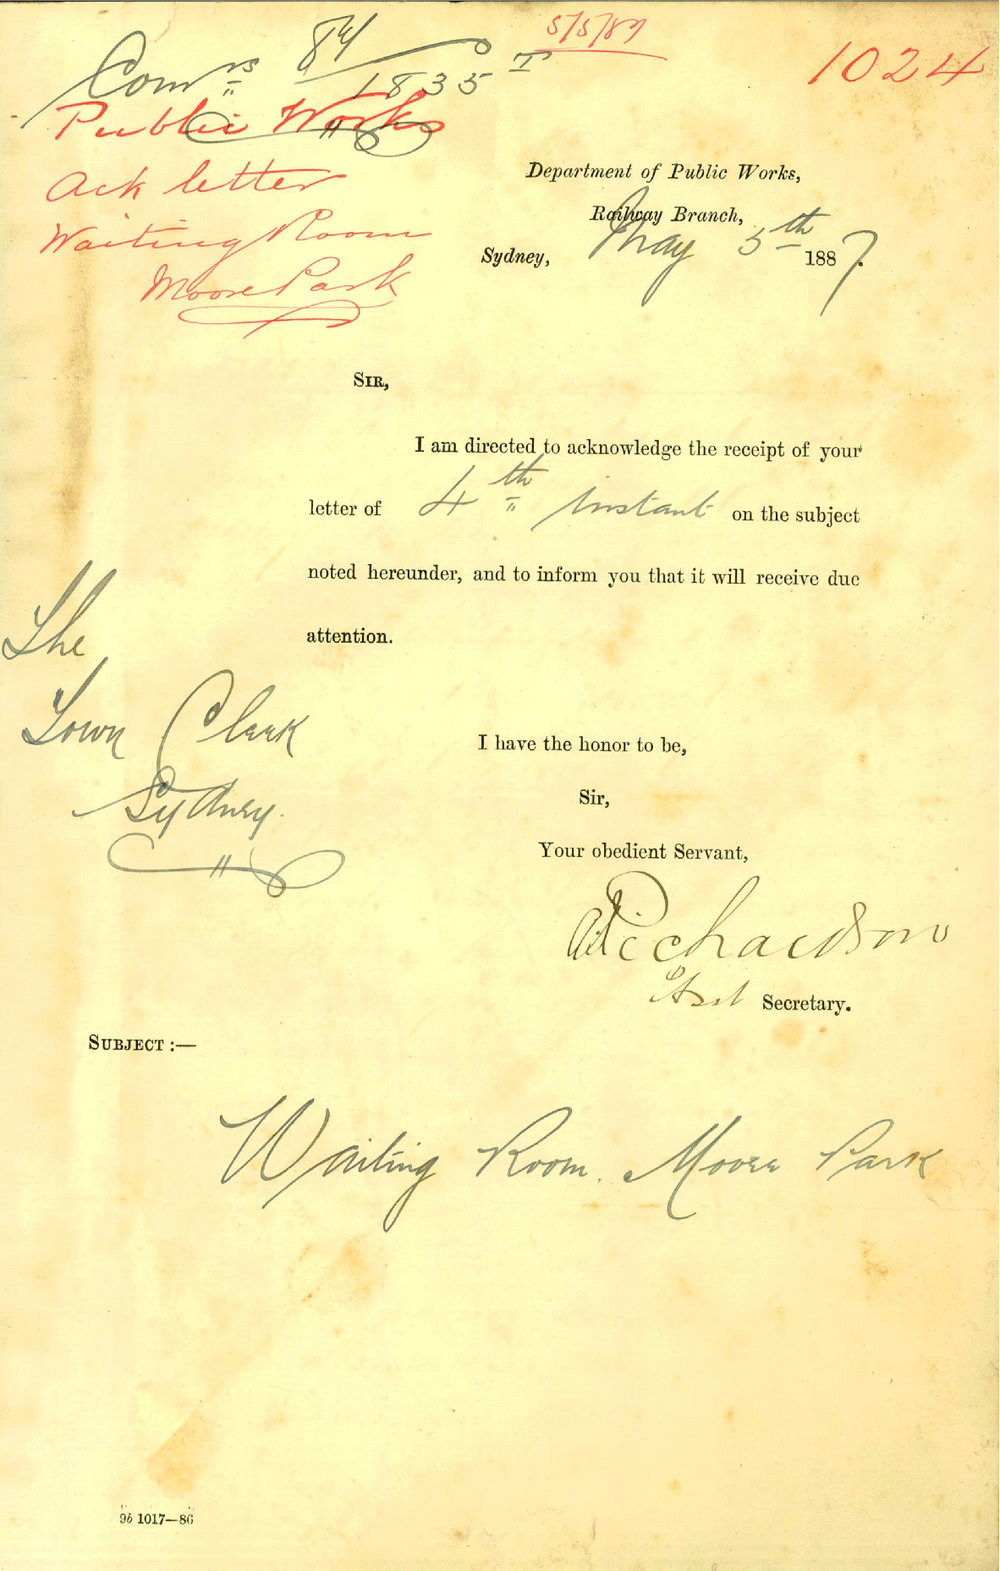 Comrs 87/1835 T
5/5/87
1024
Public Works
Ack letter
Waiting Room
Moore Park
Department of Public Works,
Railway Branch,
Sydney, May 5th 1887.
SIR,
I am directed to acknowledge the receipt of your
letter of 4th instant on the subject
noted hereunder, and to inform you that it will receive due
attention.
The
Town Clerk
Sydney.
I have the honor to be,
Sir,
Your obedient Servant,
Richardson
Asst Secretary.
SUBJECT :—
Waiting Room. Moore Park
9b 1017—86